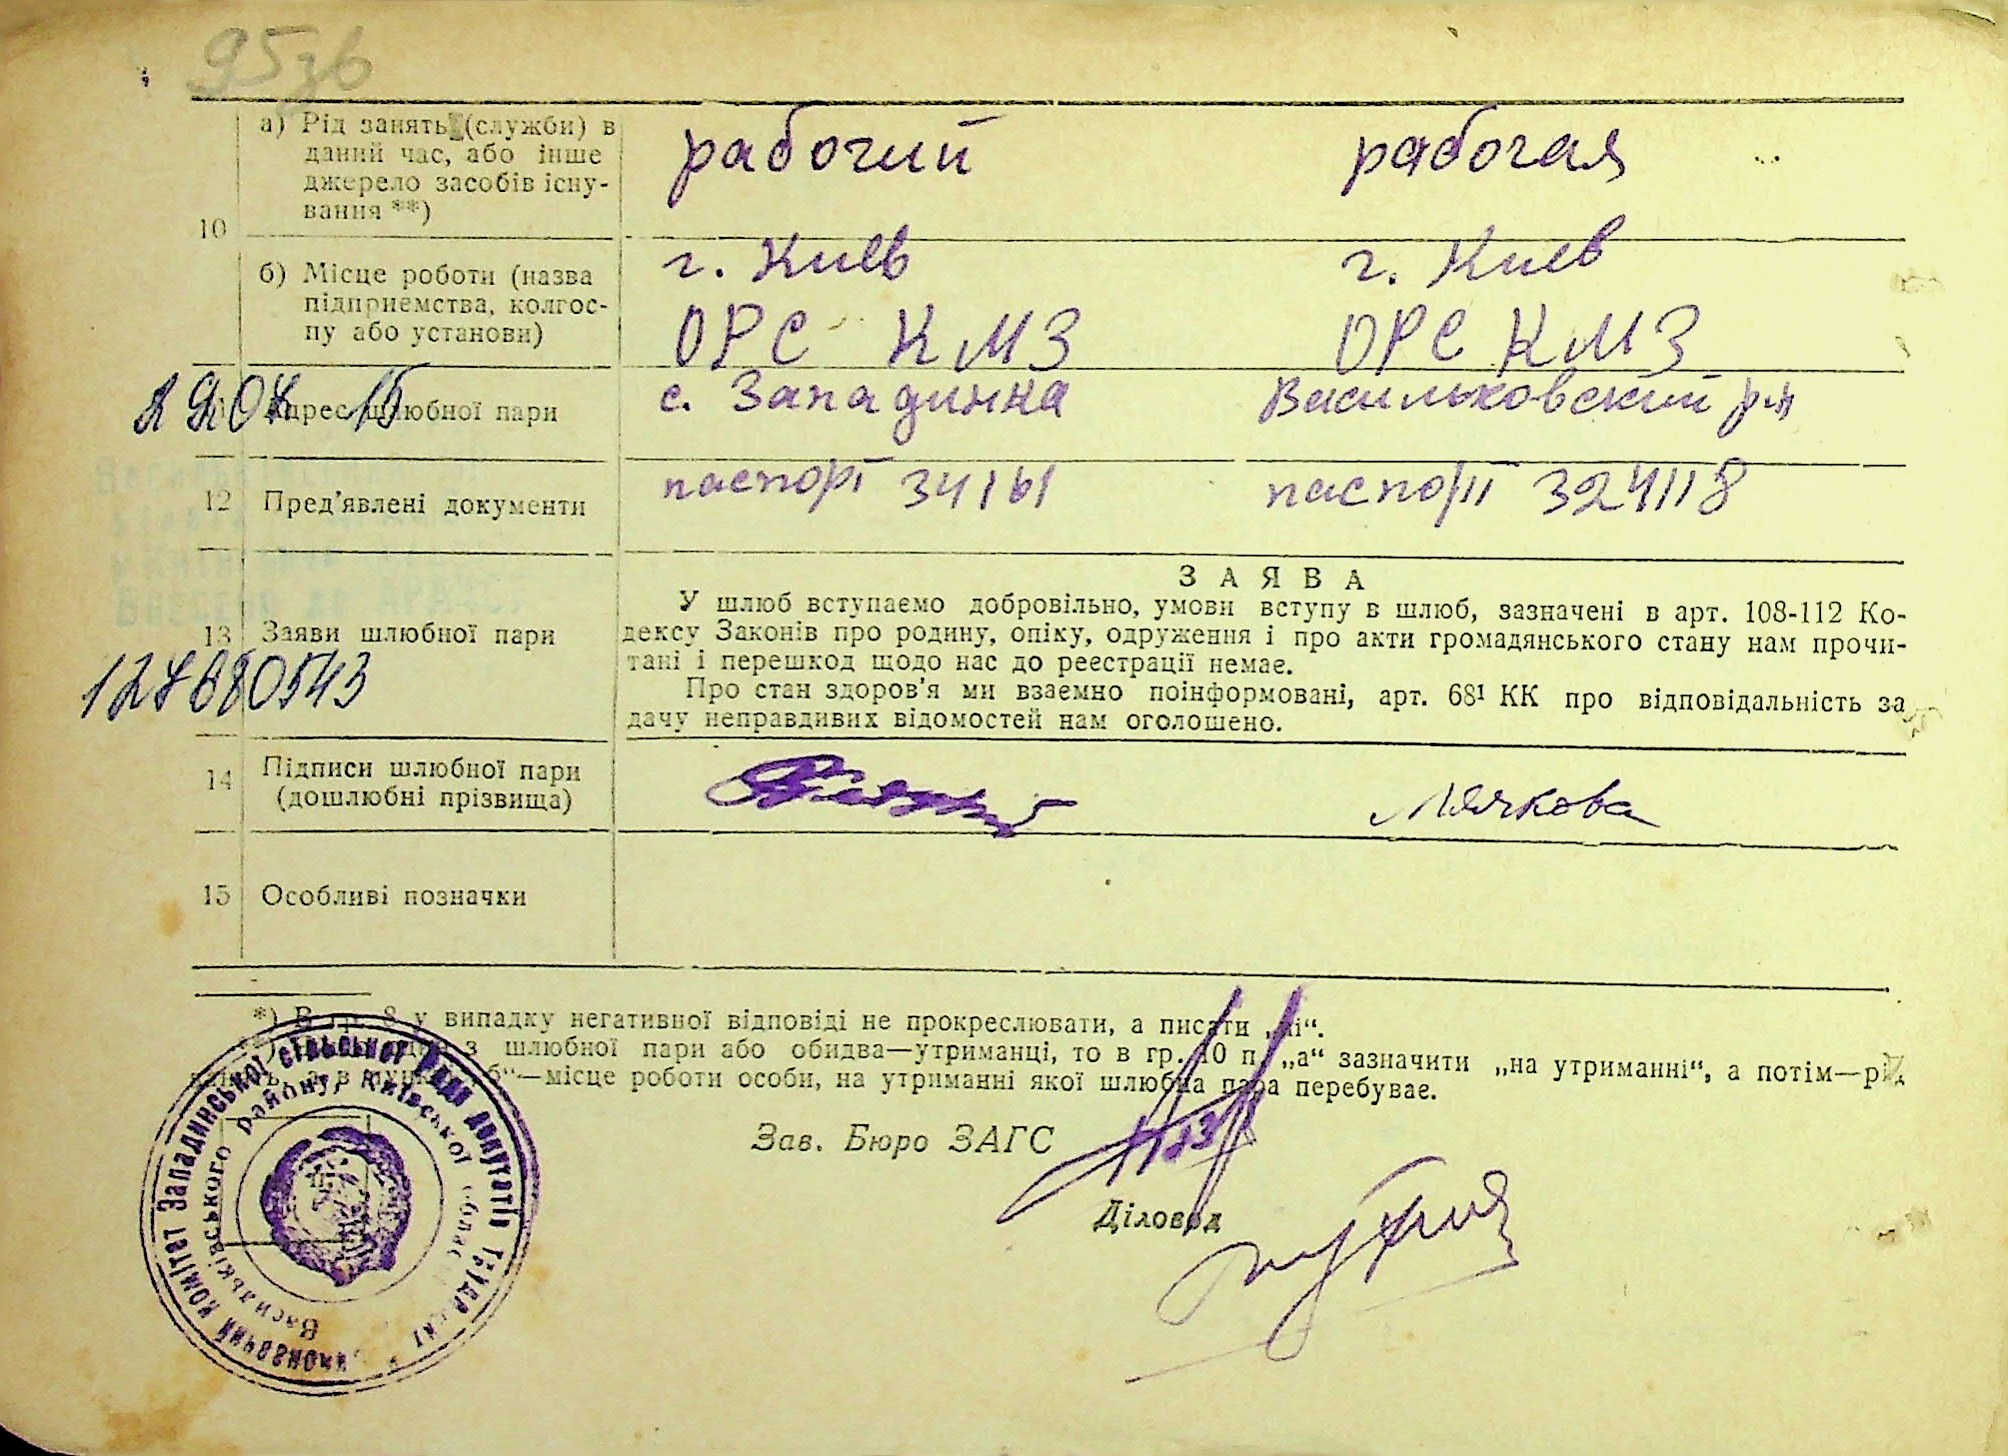 95зв
а) Рід занять (служби) в
даний час, або інше
джерело засобів існу-
вання **)
рабочий рабочая
10
б) Місце роботи (назва
підприємства, колгос-
пу або установи)
г. Киев г. Киев
ОРС КМЗ ОРС КМЗ
Адрес шлюбної пари
с. Западинка Васильковский р-н
12 Пред'явлені документи
паспорт 34161 паспорт 324118
13 Заяви шлюбної пари
ЗАЯВА
У шлюб вступаємо добровільно, умови вступу в шлюб, зазначені в арт. 108-112 Ко-
дексу Законів про родину, опіку, одруження і про акти громадянського стану нам прочи-
тані і перешкод щодо нас до реєстрації немає.
Про стан здоров'я ми взаємно поінформовані, арт. 68¹ КК про відповідальність за
дачу неправдивих відомостей нам оголошено.
14 Підписи шлюбної пари
(дошлюбні прізвища)
15 Особливі позначки
*) В гр. 8 у випадку негативної відповіді не прокреслювати, а писати „ні“.
з шлюбної пари або обидва—утриманці, то в гр. 10 п. „а“ зазначити „на утриманні“, а потім—рід
а в пункті „б“—місце роботи особи, на утриманні якої шлюбна пара перебуває.
Зав. Бюро ЗАГС
Діловод
Виконавчий комітет Западинської сільської Ради депутатів трудящих
Васильківського району, Київської області